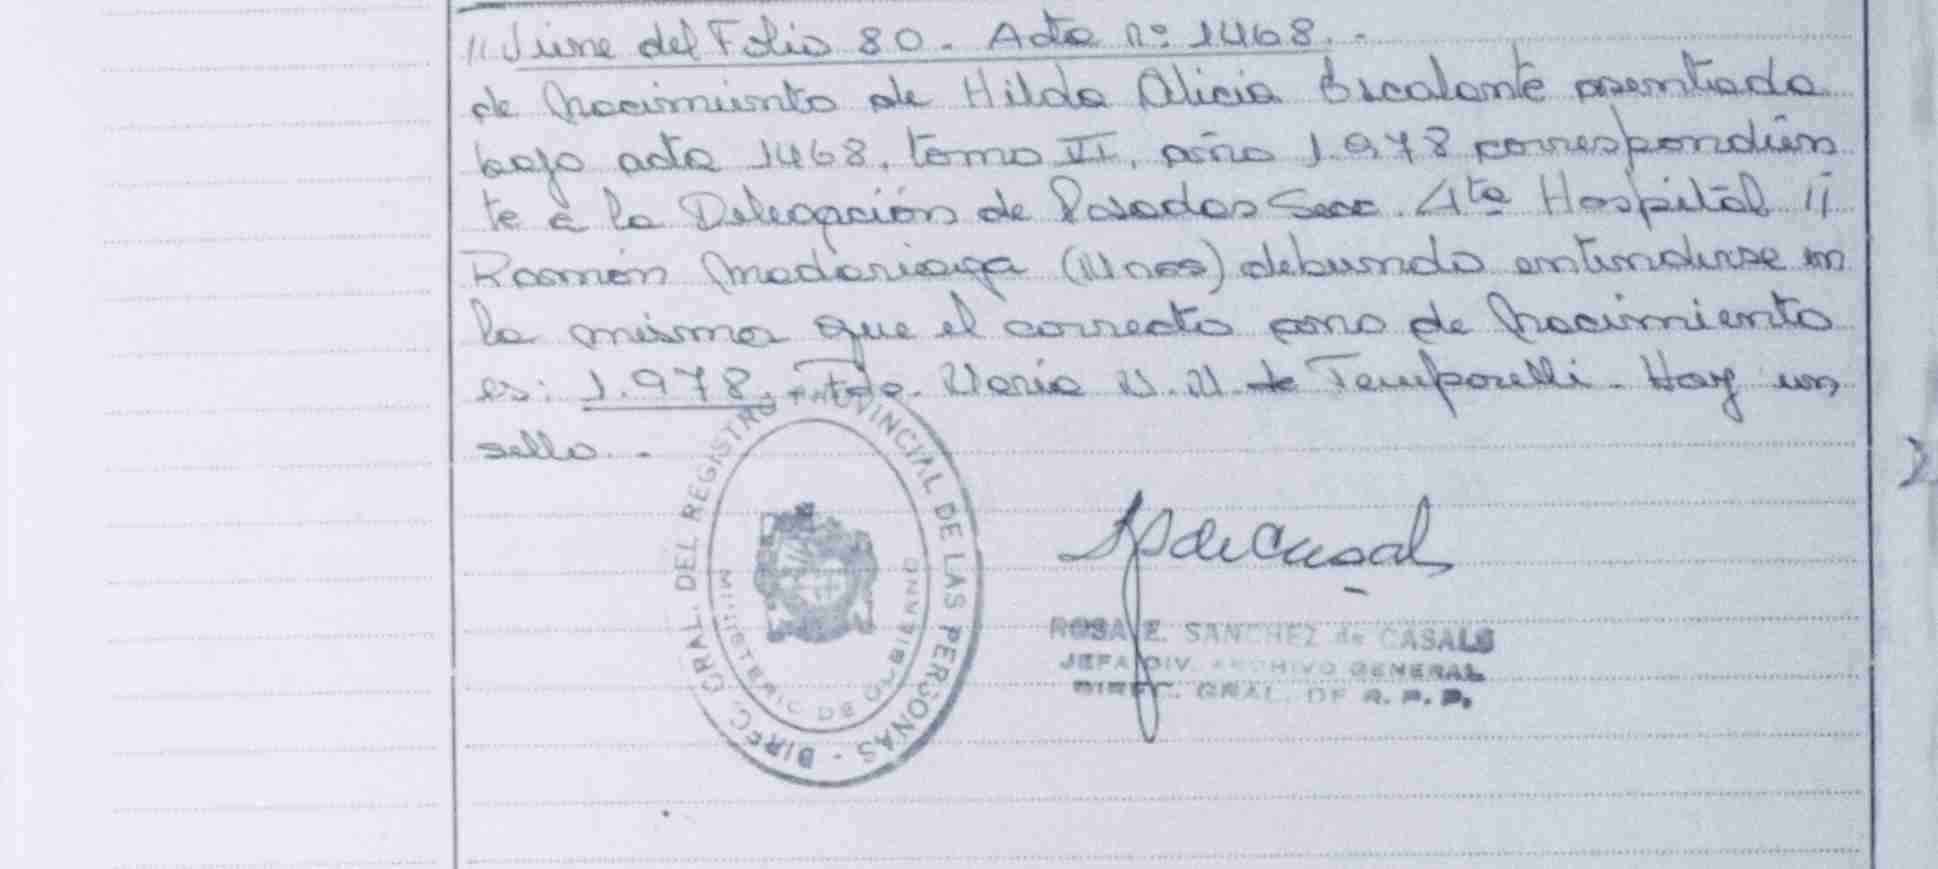 // Viene del Folio 80. Acta nº 1468. -
de Nacimiento de Hilda Alicia Escalante asentada
bajo acta 1468, tomo VI, año 1.978 correspondien
te a la Delegación de Posadas Secc. 4ta Hospital //
Ramón Madariaga (Mnes) debiendo entenderse en
la misma que el correcto año de Nacimiento
es: 1.978. Fdo. Maria M. M. de Temporelli. Hay un
sello. -
DIREC. GRAL. DEL REGISTRO PROVINCIAL DE LAS PERSONAS -
MINISTERIO DE GOBIERNO
de Casals
ROSA E. SANCHEZ de CASALS
JEFA DIV. ARCHIVO GENERAL
DIREC. GRAL. DE R. P. P.